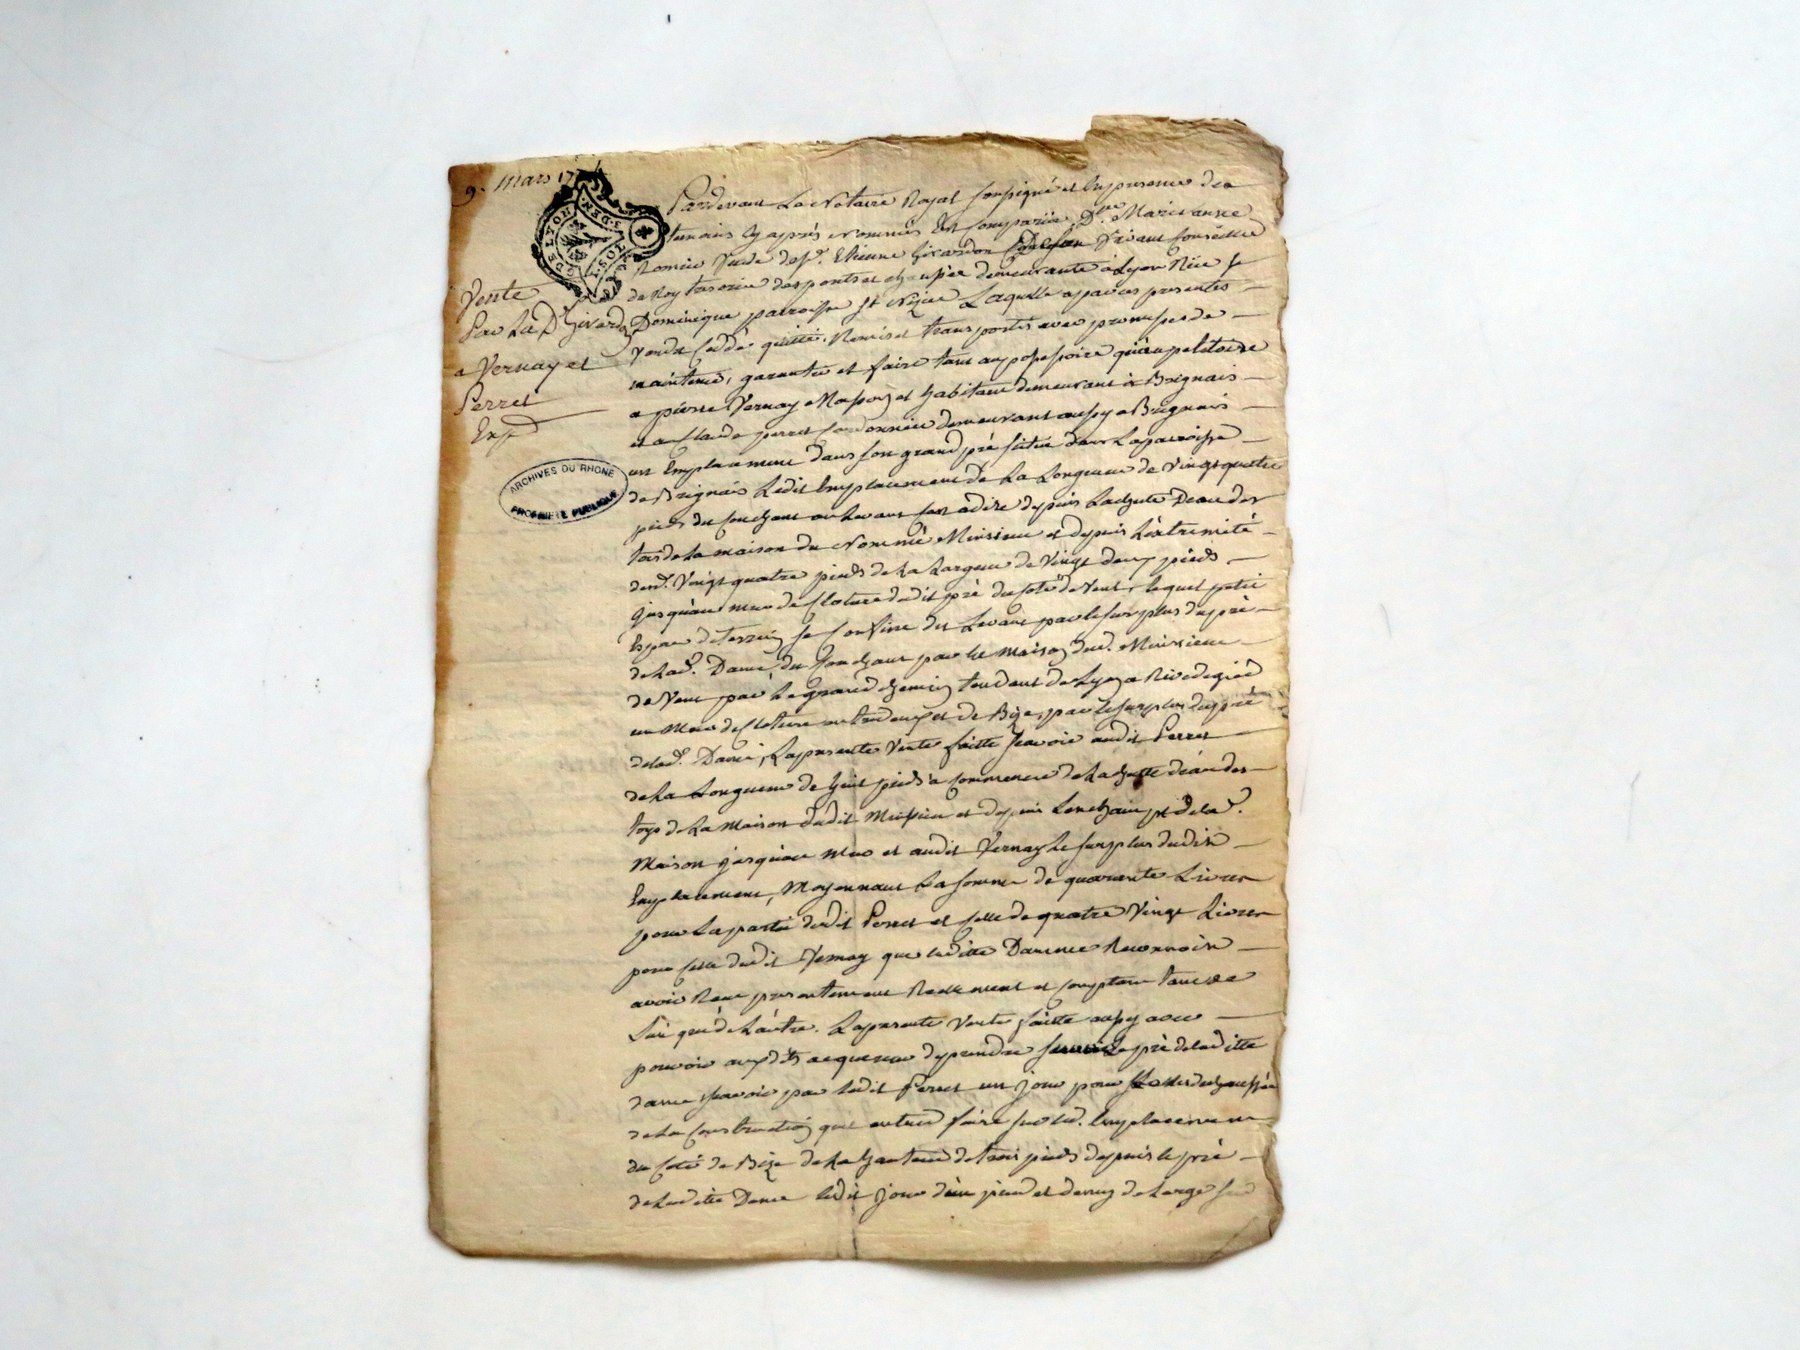 9. mars 17
G DE LYON
Vente
Par La De Girardon
a Vernay et
Perret
Exp
ARCHIVES DU RHONE
PROPRIETE PUBLIQUE
Pardevant Le Notaire Royal soussigné et En presence des
temoins Cy après Nommés Est Comparüe De Marieanne
Romieu Veuve de sr. Etienne Girardon Vivant Conseiller
du Roy tresorier des ponts et chaussées demeurante à Lyon Rüe St
Dominique parroisse St Nizier Laquelle a par ces presentes
vendu Cédé quitté, Remis et transporté avec promesse de
maintenir, garantir et faire tant au possessoire qu'au petitoire
a pierre Vernay Masson et habitant demeurant à Brignais
et a Claude perret Cordonnier demeurant aussy a Brignais
un Emplacement dans son grand pré situé dans La parroisse
de Brignais Ledit Emplacement de La Longueur de Vingt quatre
pieds du Couchant au Levant C'est a dire depuis La chute D'eau des
toits de La maison du Nommé Minsieux et depuis L'éxtremité
desd. Vingt quatre pieds de La Largeur de Vingt deux pieds
jusqu'au mur de Cloture dudit pré du Coté de Vent, lequel petit
Espace de terrein se Confine du Levant par le surplus du pré
de Lad. Dame, du Couchant par la maison dud. Minsieux
de Vent par Le grand chemin tendant de Lyon a Rivedegied
un Mur de Cloture entredeux et de Bize, par le surplus du pré
de lad. Dame, La presente Vente faitte scavoir audit Perret
de La Longueur de huit pieds a Commencer de La chutte d'eau des
toys de La Maison dudit Missieu et depuis de la d.
Maison jusqu'au mur et audit Vernay Le surplus dudit
Emplacement, Moyennant La somme de quarante Livres
pour La partie dudit Perret et Celle de quatre Vingt Livres
pour Celle dudit Vernay que ladite Dame Reconnoit
avoir Receu presentement Reellement et Comptant tant de
L'un que de L'autre. La presente Vente faitte aussy avec
pouvoir auxdits acquereurs de prendre sur Le pré de laditte
dame scavoir par ledit Perret un jour pour
de La Construction qu'il entend faire sur led. Emplacement
du Coté de Bize de La hauteur de trois pieds depuis le pré
de Laditte Dame ledit jour d'un pied et demy de Large